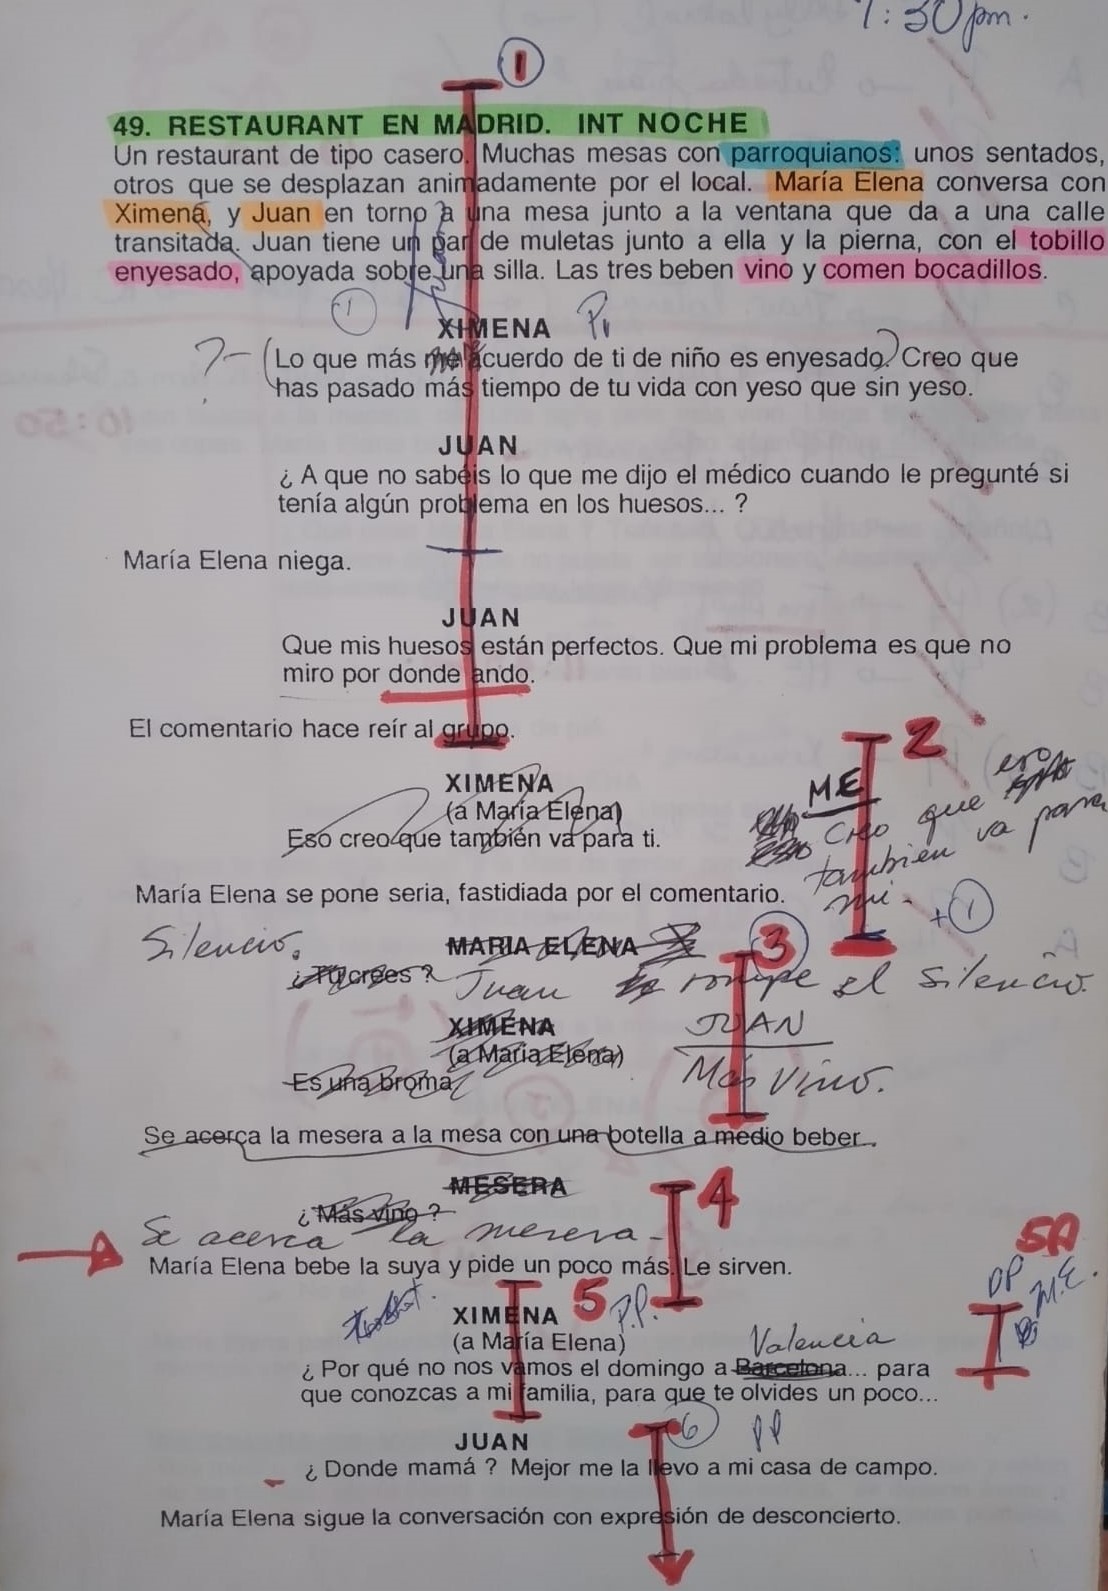 7:30pm.
1
49. RESTAURANT EN MADRID. INT NOCHE
Un restaurant de tipo casero. Muchas mesas con parroquianos: unos sentados,
otros que se desplazan animadamente por el local. María Elena conversa con
Ximena, y Juan en torno a una mesa junto a la ventana que da a una calle
transitada. Juan tiene un par de muletas junto a ella y la pierna, con el tobillo
enyesado, apoyada sobre una silla. Las tres beben vino y comen bocadillos.
1
XIMENA
?- (Lo que más me acuerdo de ti de niño es enyesado. Creo que
has pasado más tiempo de tu vida con yeso que sin yeso.
JUAN
¿ A que no sabéis lo que me dijo el médico cuando le pregunté si
tenía algún problema en los huesos... ?
María Elena niega.
JUAN
Que mis huesos están perfectos. Que mi problema es que no
miro por donde ando.
El comentario hace reír al grupo.
2
XIMENA
(a María Elena)
Eso creo que también va para ti.
M.E
Creo que eso
también va para
mi.
María Elena se pone seria, fastidiada por el comentario.
+ 1
Silencio.
MARIA ELENA
3
¿Tú crees ?
Juan rompe el silencio.
XIMENA
(a María Elena)
Es una broma
JUAN
Más vino.
Se acerca la mesera a la mesa con una botella a medio beber.
MESERA
4
¿ Más vino ?
Se acerca la mesera-
María Elena bebe la suya y pide un poco más. Le sirven.
5A
M.E.
XIMENA 5 P.P.
(a María Elena)
Valencia
¿ Por qué no nos vamos el domingo a Barcelona... para
que conozcas a mi familia, para que te olvides un poco...
JUAN
6 PP
¿ Donde mamá ? Mejor me la llevo a mi casa de campo.
María Elena sigue la conversación con expresión de desconcierto.